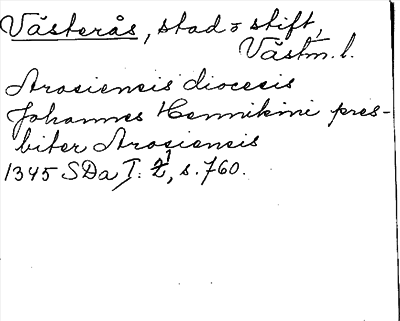 Västerås, stad o stift,
Västm. l.
Arosiensis diocesis
Johannes Hennikini pres-
biter Arosiensis
1345 SDa I. 2, s. 760.